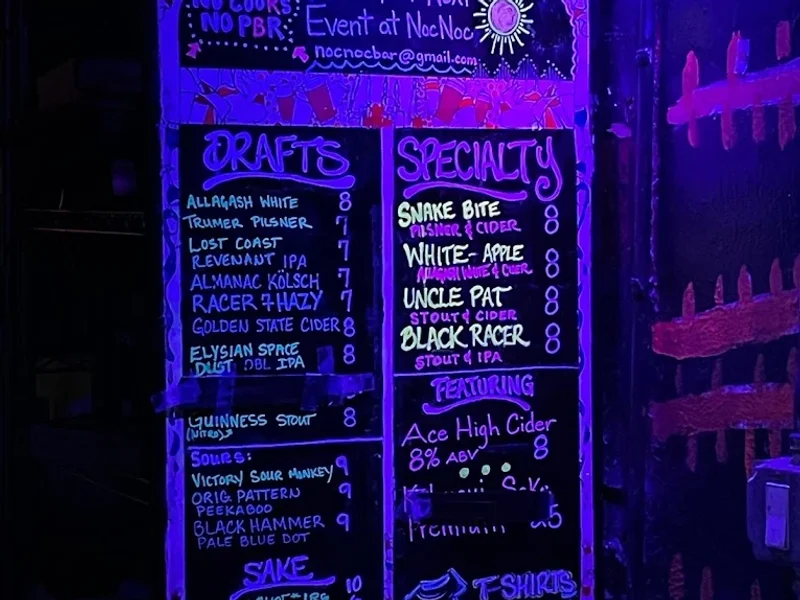 NO COOKS
NO PBR
Event at NocNoc
nocnocbar@gmail.com
DRAFTS
ALLAGASH WHITE 8
TRUMER PILSNER 7
LOST COAST
REVENANT IPA 7
ALMANAC KÖLSCH 7
RACER 7 HAZY 7
GOLDEN STATE CIDER 8
ELYSIAN SPACE
DUST DBL IPA 8
GUINNESS STOUT 8
(NITRO)
SOURS:
VICTORY SOUR MONKEY 9
ORIG. PATTERN 9
PEEKABOO
BLACK HAMMER 9
PALE BLUE DOT
SAKE
10
SPECIALTY
SNAKE BITE 8
PILSNER & CIDER
WHITE-APPLE 8
ALLAGASH WHITE & CIDER
UNCLE PAT 8
STOUT & CIDER
BLACK RACER 8
STOUT & IPA
FEATURING
Ace High Cider
8% ABV 8
Premium
T-SHIRTS